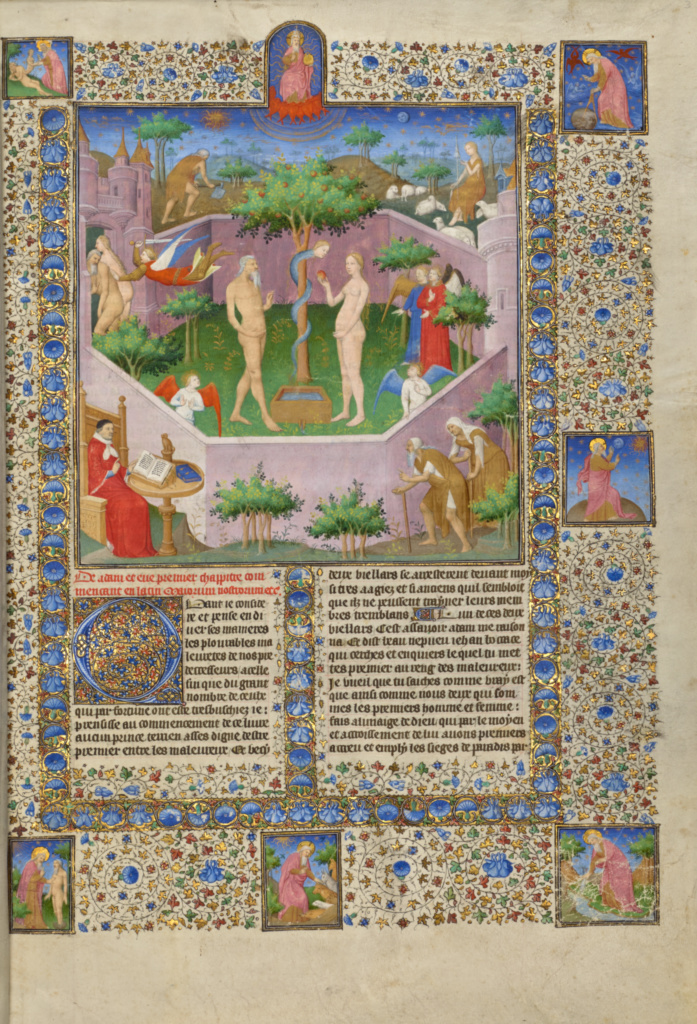 De adam et eue premier chappitre com
mencant en latin Maiorum nostrorum etc
Quant ie conside
re et pense en di
uerses manieres
les plourables ma
leuretes de nos pre
decesseurs a celle
fin que du grant
nombre de ceulx
qui par fortune ont este tresbuschiez ie:
prensisse au commencement de ce liure
aucun prince terrien asses digne destre
premier entre les maleureux Et vecy
deux viellars se aresterent deuant moy
si tres aagiez et si anciens quil sembloit
que ilz ne peussent trayner leurs mem
bres tremblans Lun de ces deux
viellars Cest assauoir adam me raison
na. Et dist beau nepueu iehan bocace
qui cerches et enquiers lequel tu met
tes premier au reng des maleureux:
Je vueil que tu saiches comme vray est
que ainsi comme nous deux qui som
mes les premiers homme et femme:
fais a limaige de dieu qui par le moyen
et accroissement de lui auons premiers
acreu et emply les sieges de paradis par